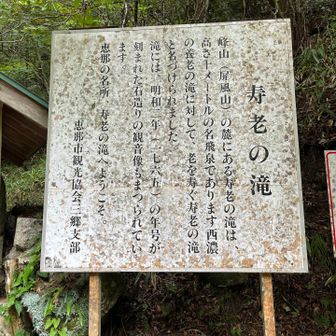 寿老の滝
峰山（屏風山）の麓にある寿老の滝は
高さ十メートルの名飛泉であります西濃
の養老の滝に対して、老を寿ぐ寿老の滝
と名づけられました
滝には、明和二年（一七六五）の年号が
刻まれた石造りの観音像もまつられてい
ます。
恵那の名所　寿老の滝へようこそ。
恵那市観光協会三郷支部